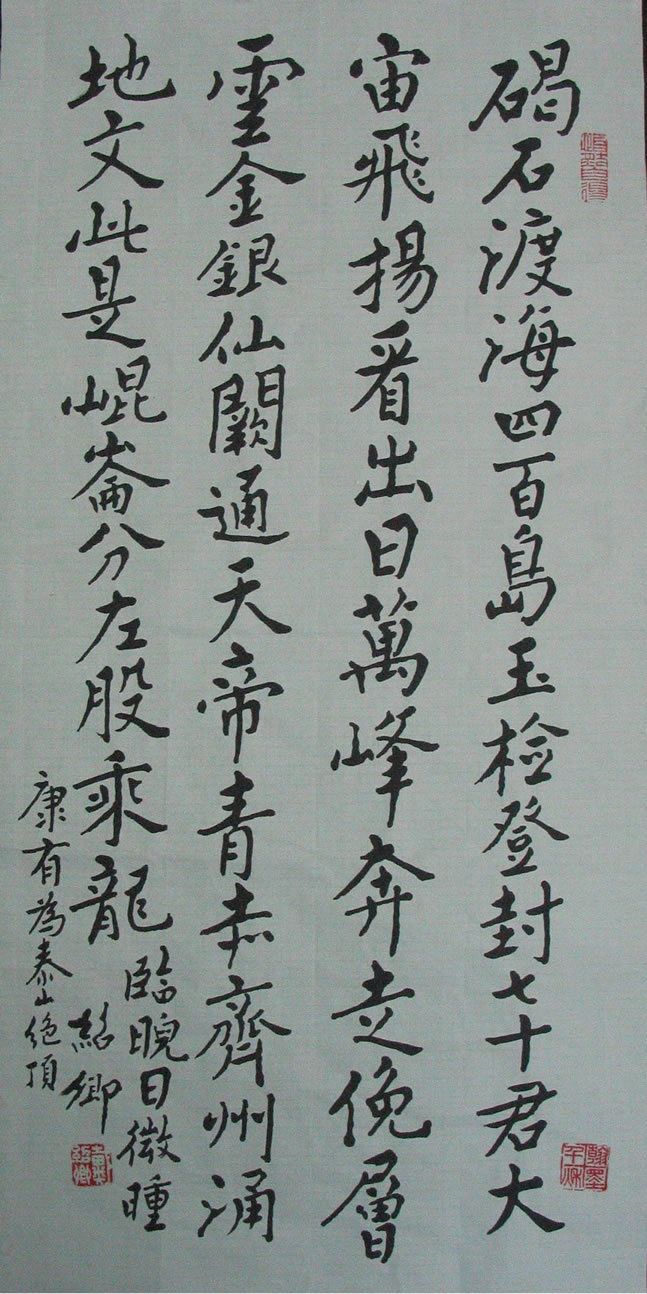 碣石渡海四百島玉檢登封七十君大
宙飛揚看出日萬峰奔走俛層
雲金銀仙闕通天帝青赤齊州涌
地文此是崐崙分左股乘龍
臨睨日微曈
紹卿
康有為泰山絶頂